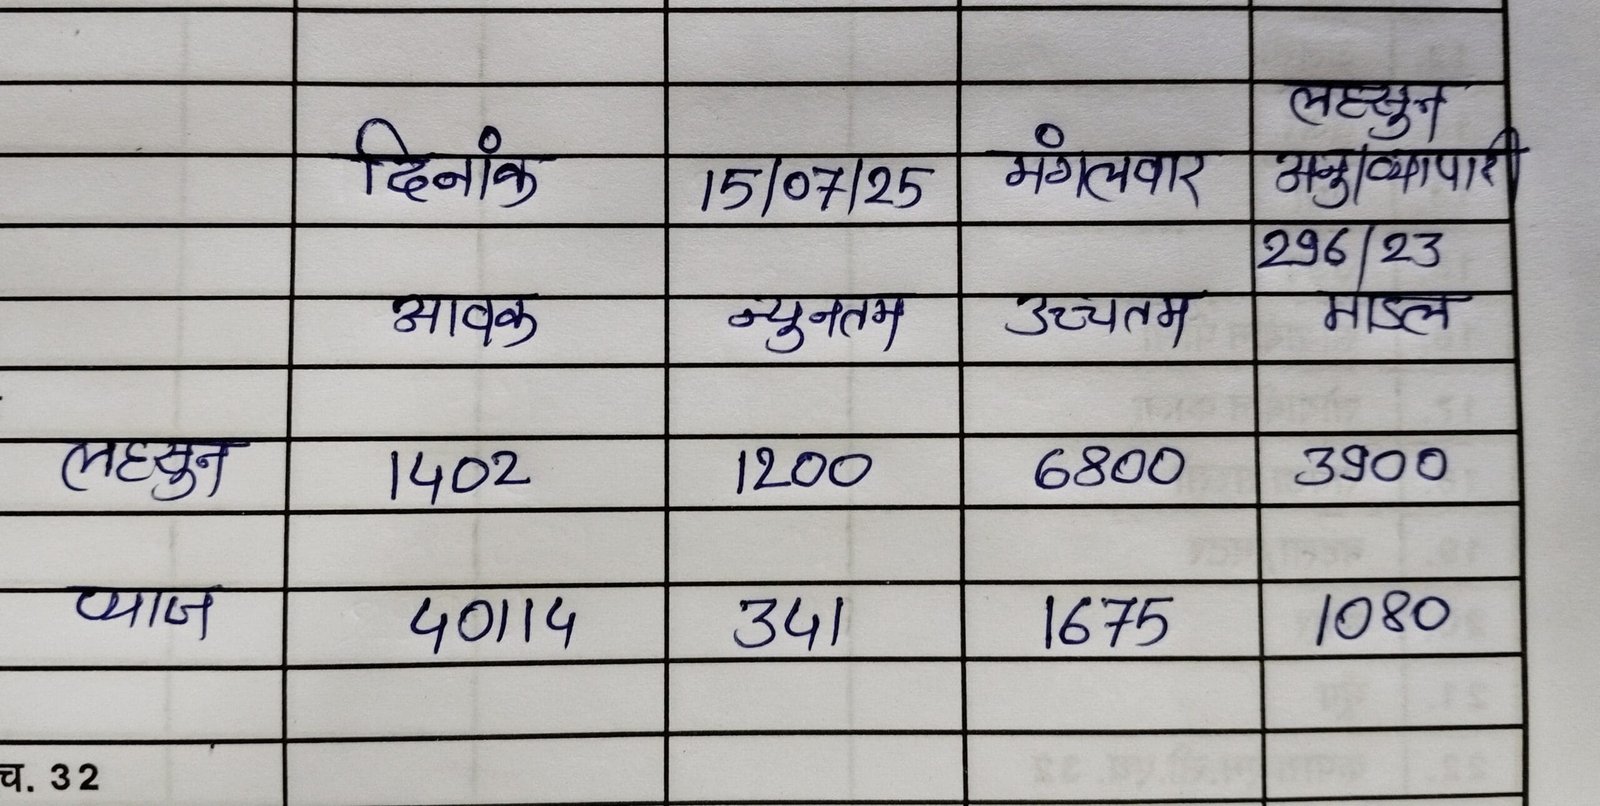 लहसुन
दिनांक 15/07/25 मंगलवार अनु/व्यापारी
296/23
आवक न्युनतम उच्चतम माडल
लहसुन 1402 1200 6800 3900
प्याज 40114 341 1675 1080
च. 32